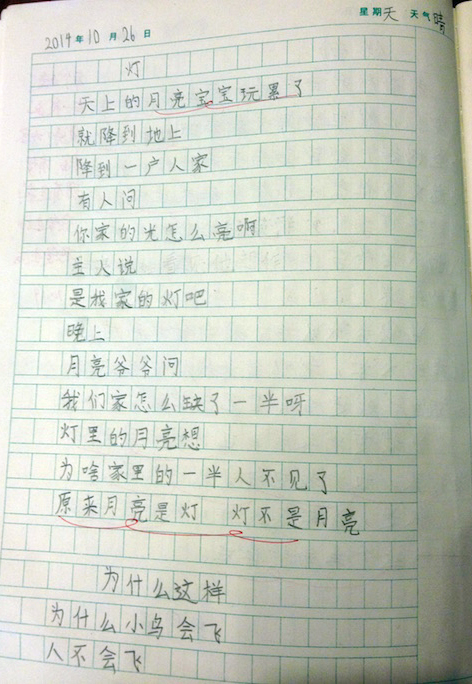 星期天 天气晴
2014年10月26日
灯
天上的月亮宝宝玩累了
就降到地上
降到一户人家
有人问
你家的光怎么亮啊
主人说
是我家的灯吧
晚上
月亮爷爷问
我们家怎么缺了一半呀
灯里的月亮想
为啥家里的一半人不见了
原来月亮是灯 灯不是月亮
为什么这样
为什么小鸟会飞
人不会飞